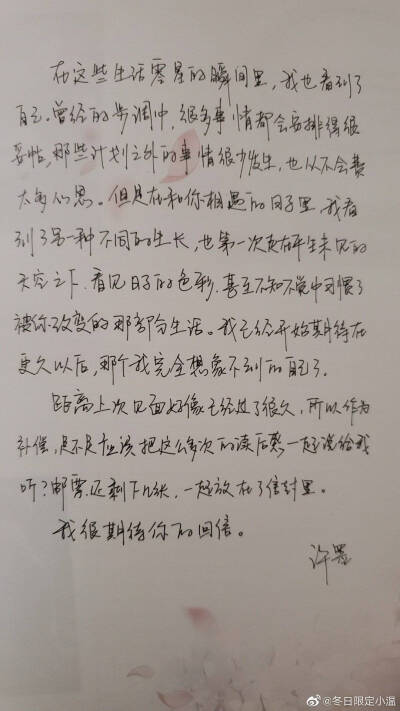 在这些生活零星的瞬间里，我也看到了
自己。曾经的步调中，很多事情都会安排得很
妥帖，那些计划之外的事情很少发生，也从不会费
太多心思。但是在和你相遇的日子里，我看
到了另一种不同的生长，也第一次走在平生未见的
天空之下，看见日子的色彩，甚至不知不觉中习惯了
被你改变的那部分生活。我已经开始期待在
更久以后，那个我完全想象不到的自己了。
距离上次见面好像已经过了很久，所以作为
补偿，是不是应该把这么多次的读后感一起说给我
听？邮票还剩下几张，一起放在了信封里。
我很期待你的回信。
许墨
@冬日限定小温